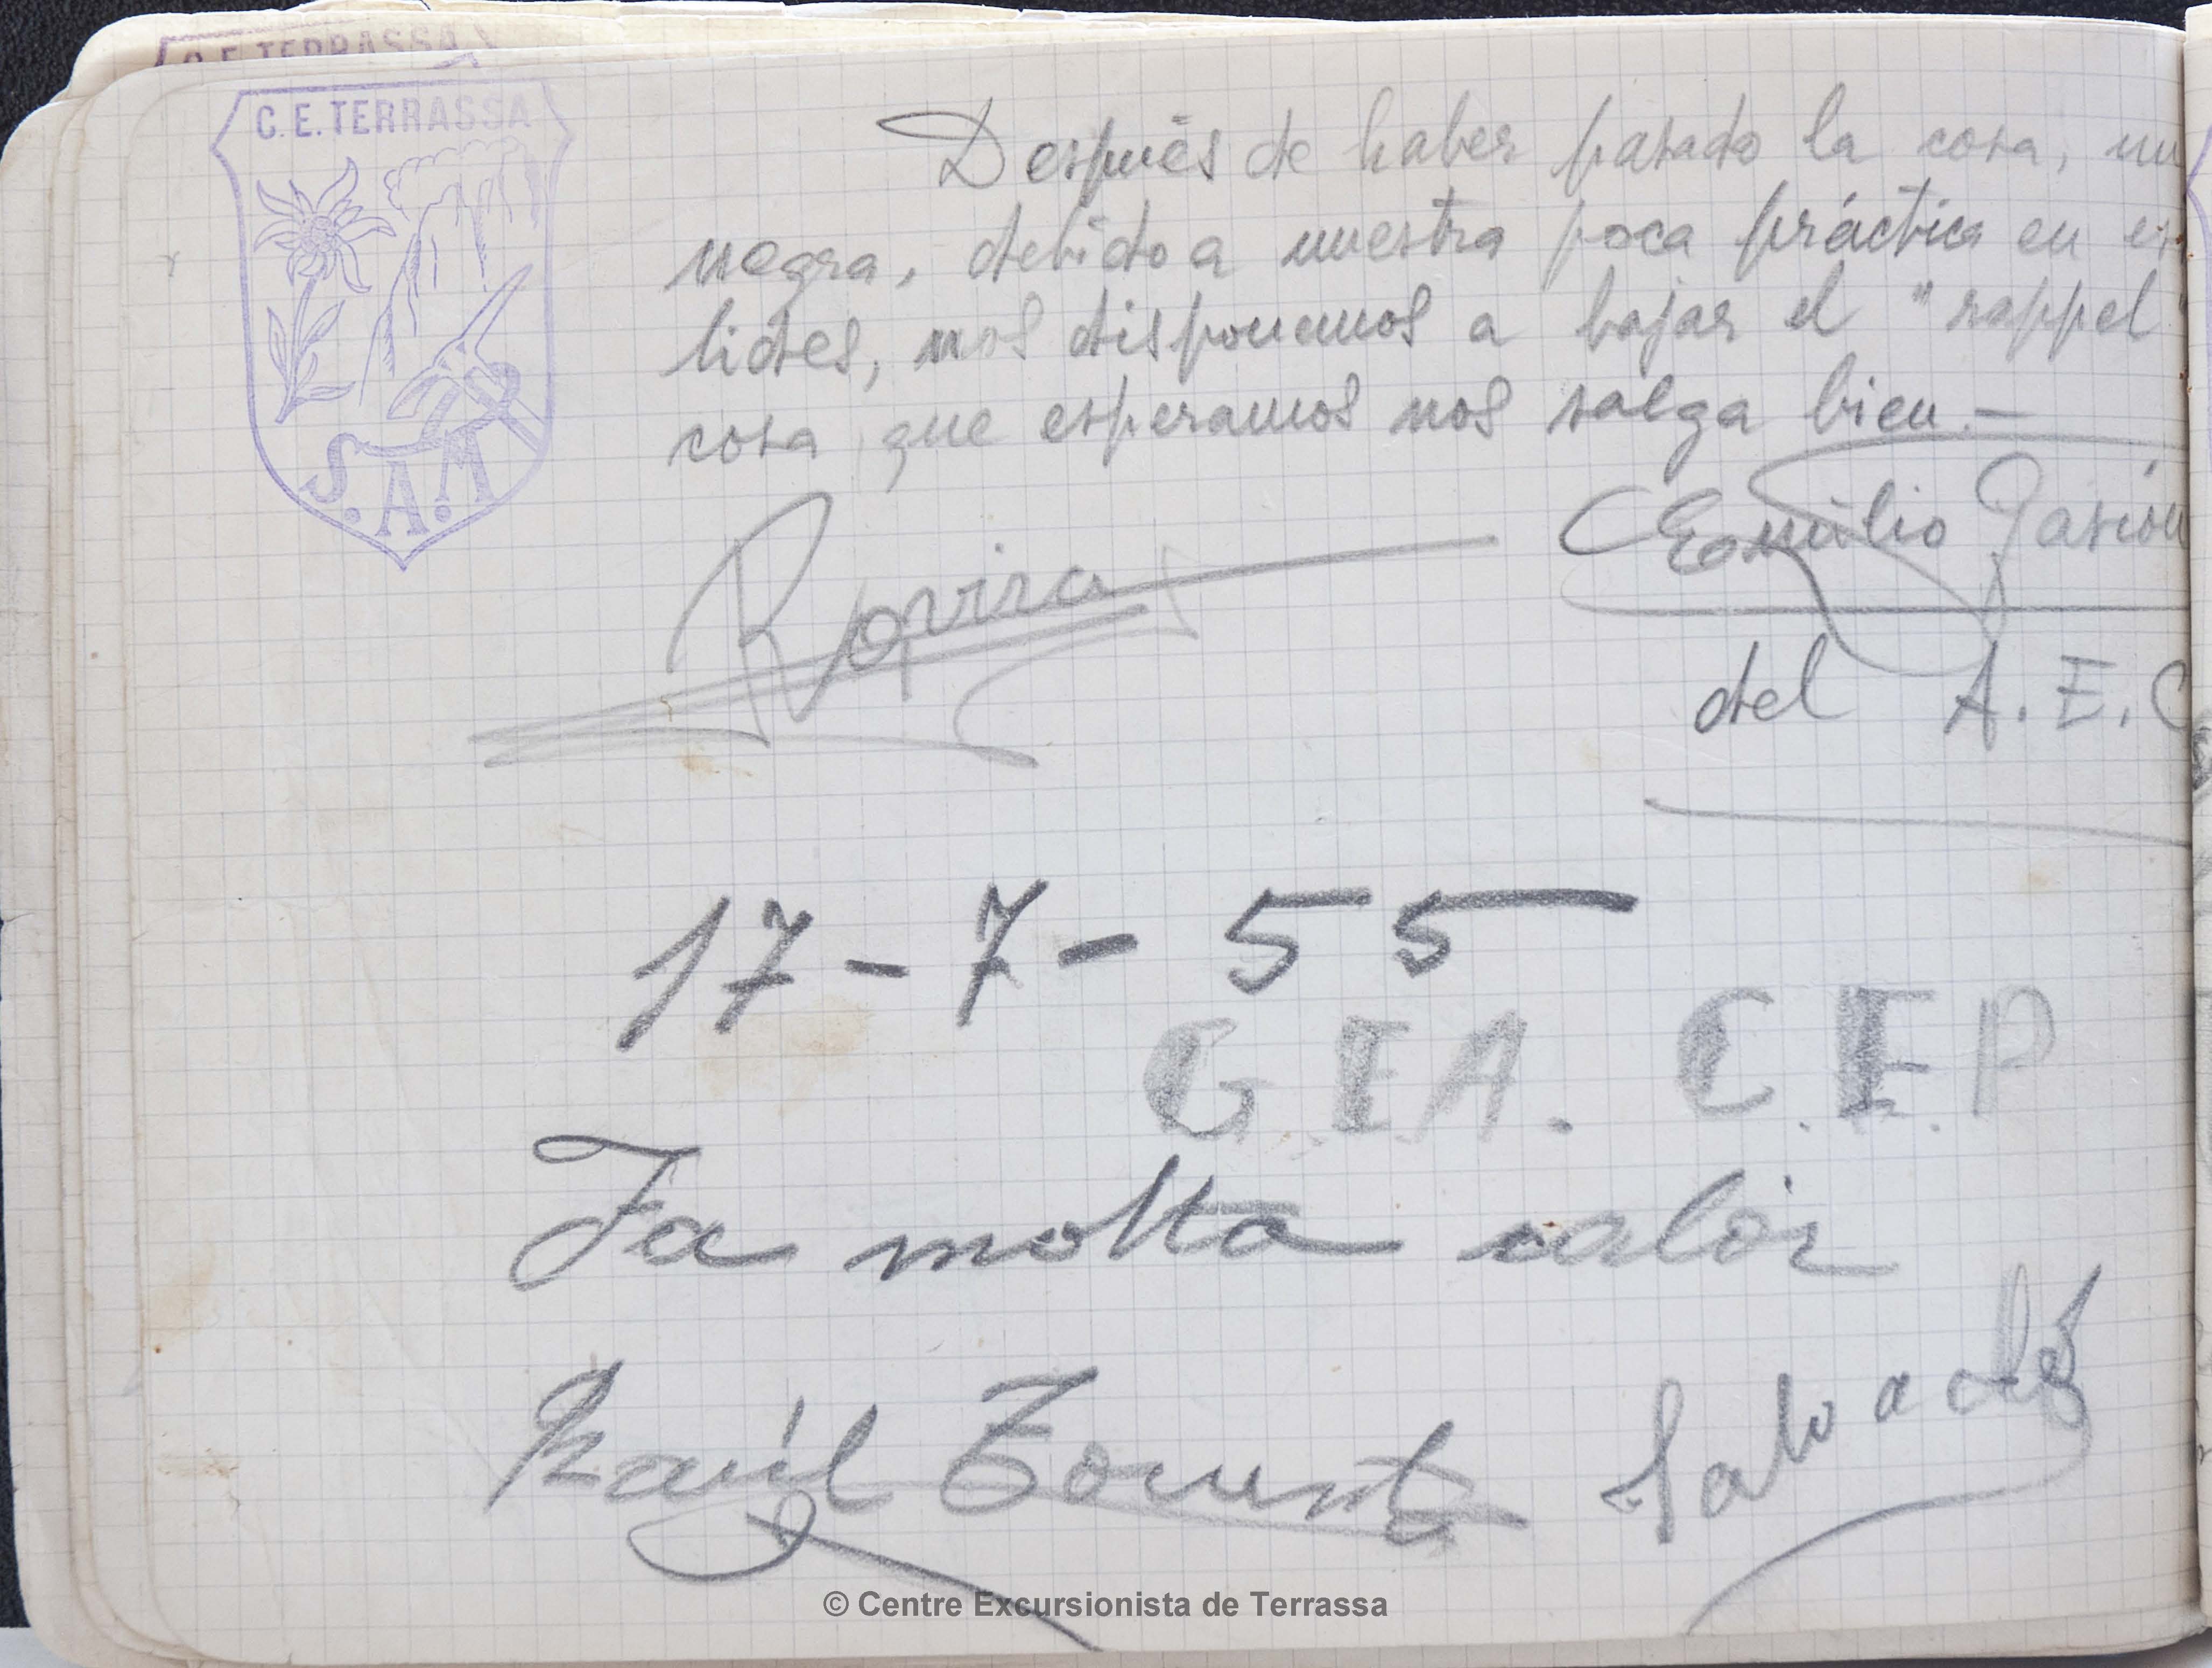 C.E. TERRASSA
C. E. TERRASSA
S. A. M.
Después de haber pasado la cosa, un
negra, debido a nuestra poca práctica en es
lides, nos disponemos a bajar el "rappel"
cosa que esperamos nos salga bien.—
Rovira
Emilio
del A. E. C
17-7-55
G.E.A. C.E.P
Fa molta calor
Raúl Torrent
© Centre Excursionista de Terrassa